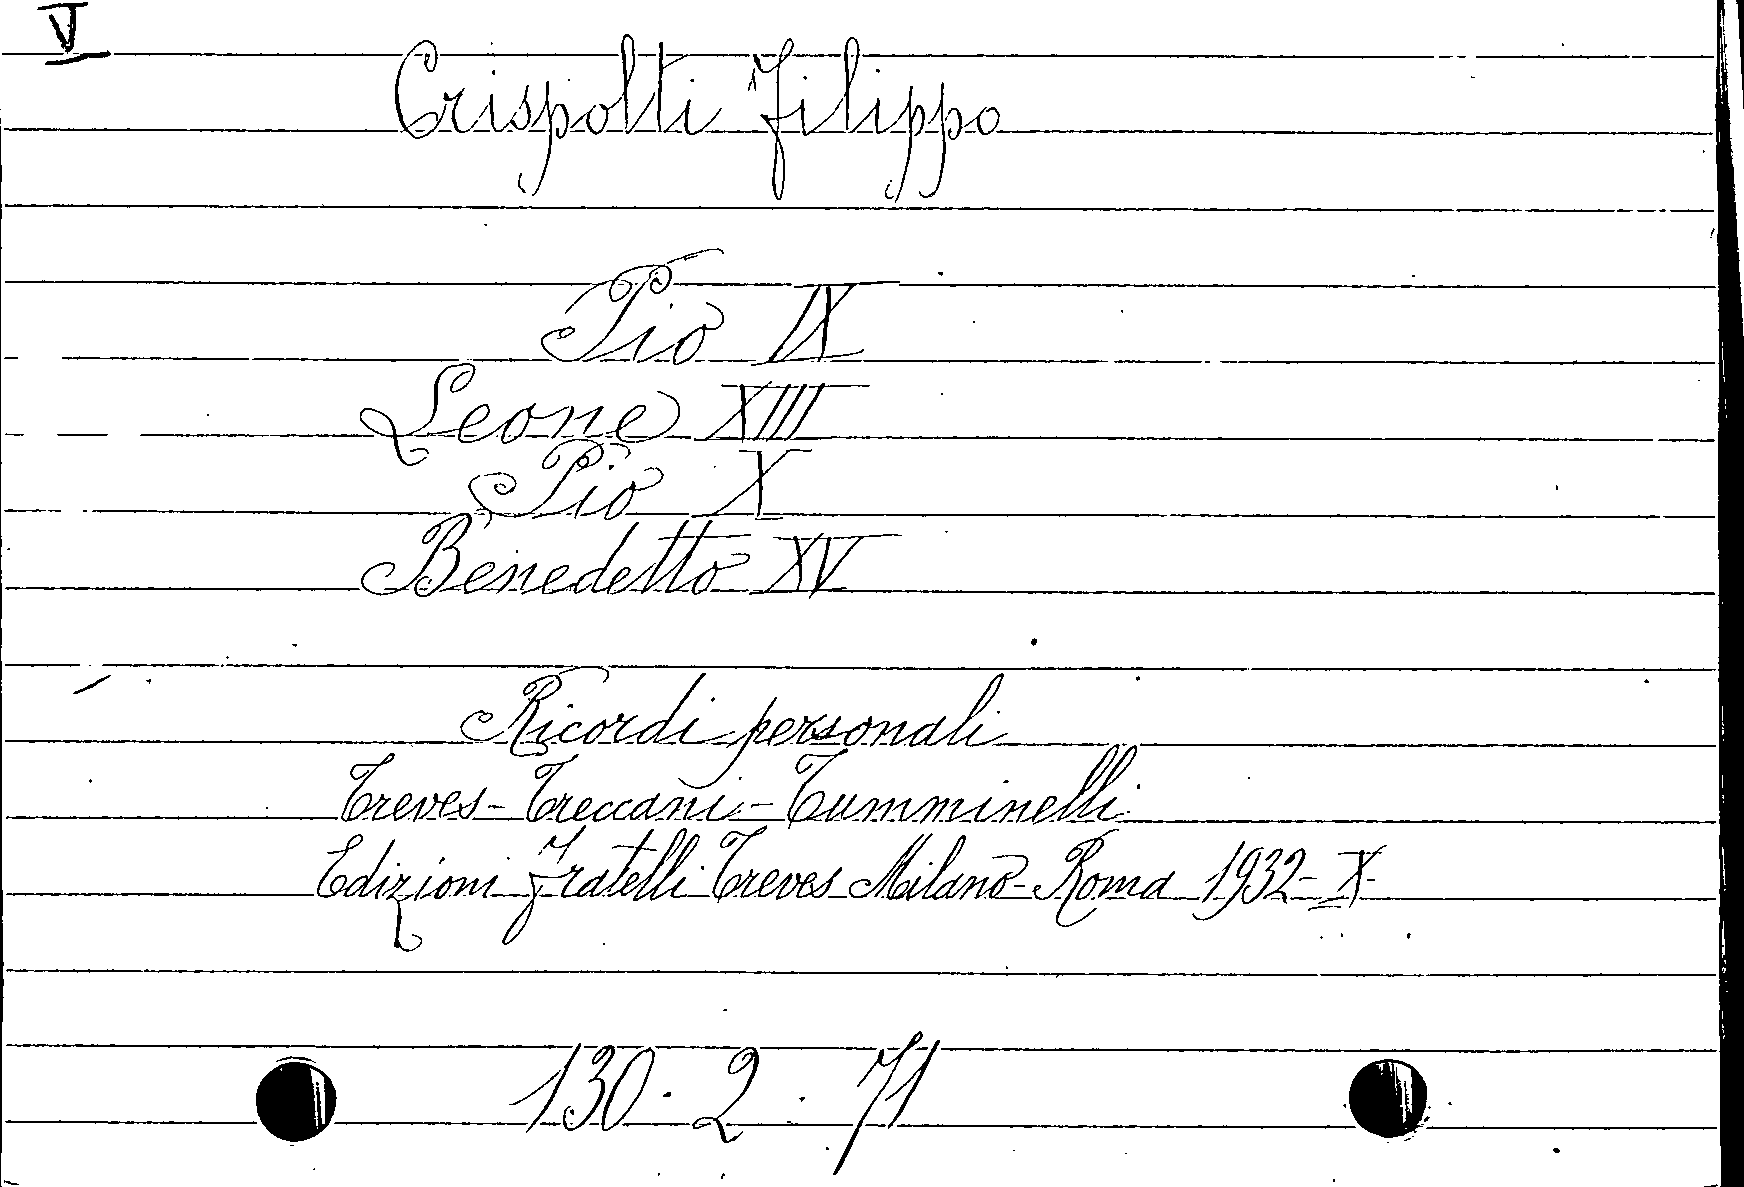 V
Crispolti Filippo
Pio IX
Leone XIII
Pio X
Benedetto XV
Ricordi personali
Treves - Treccani - Tumminelli
Edizioni Fratelli Treves Milano - Roma 1932 - X
130 . 2 . 71